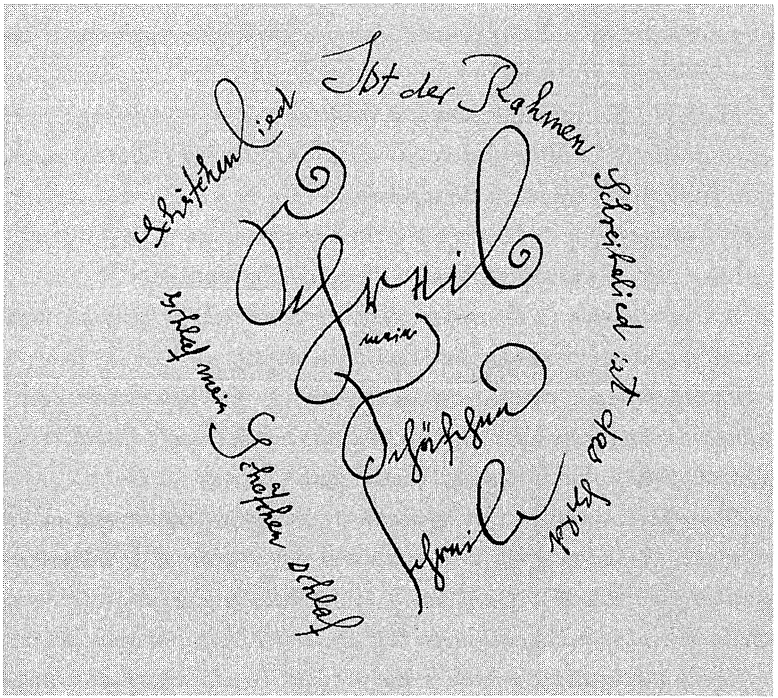 Schäfchenlied Ist der Rahmen Schreibelied ist das Bild
schlaf mein Schäfchen schlaf
Schreib
mein
Schäfchen
schreib